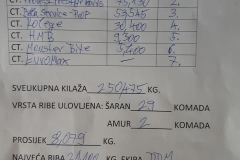 CT. 75,130 2.
CT. Data Service-Prop 53,545 3.
CT. Kolege 30,400 4.
CT. HMB 9,300 5.
CT. Monster Bite 5,400 6.
CT. EuroMax — 7.
SVEUKUPNA KILAŽA 250475 KG.
VRSTA RIBE ULOVLJENU: ŠARAN 29 KOMADA
AMUR 2 KOMADA
PROSIJEK 8,079 KG.
NAJVEĆA RIBA KG. EKIPA